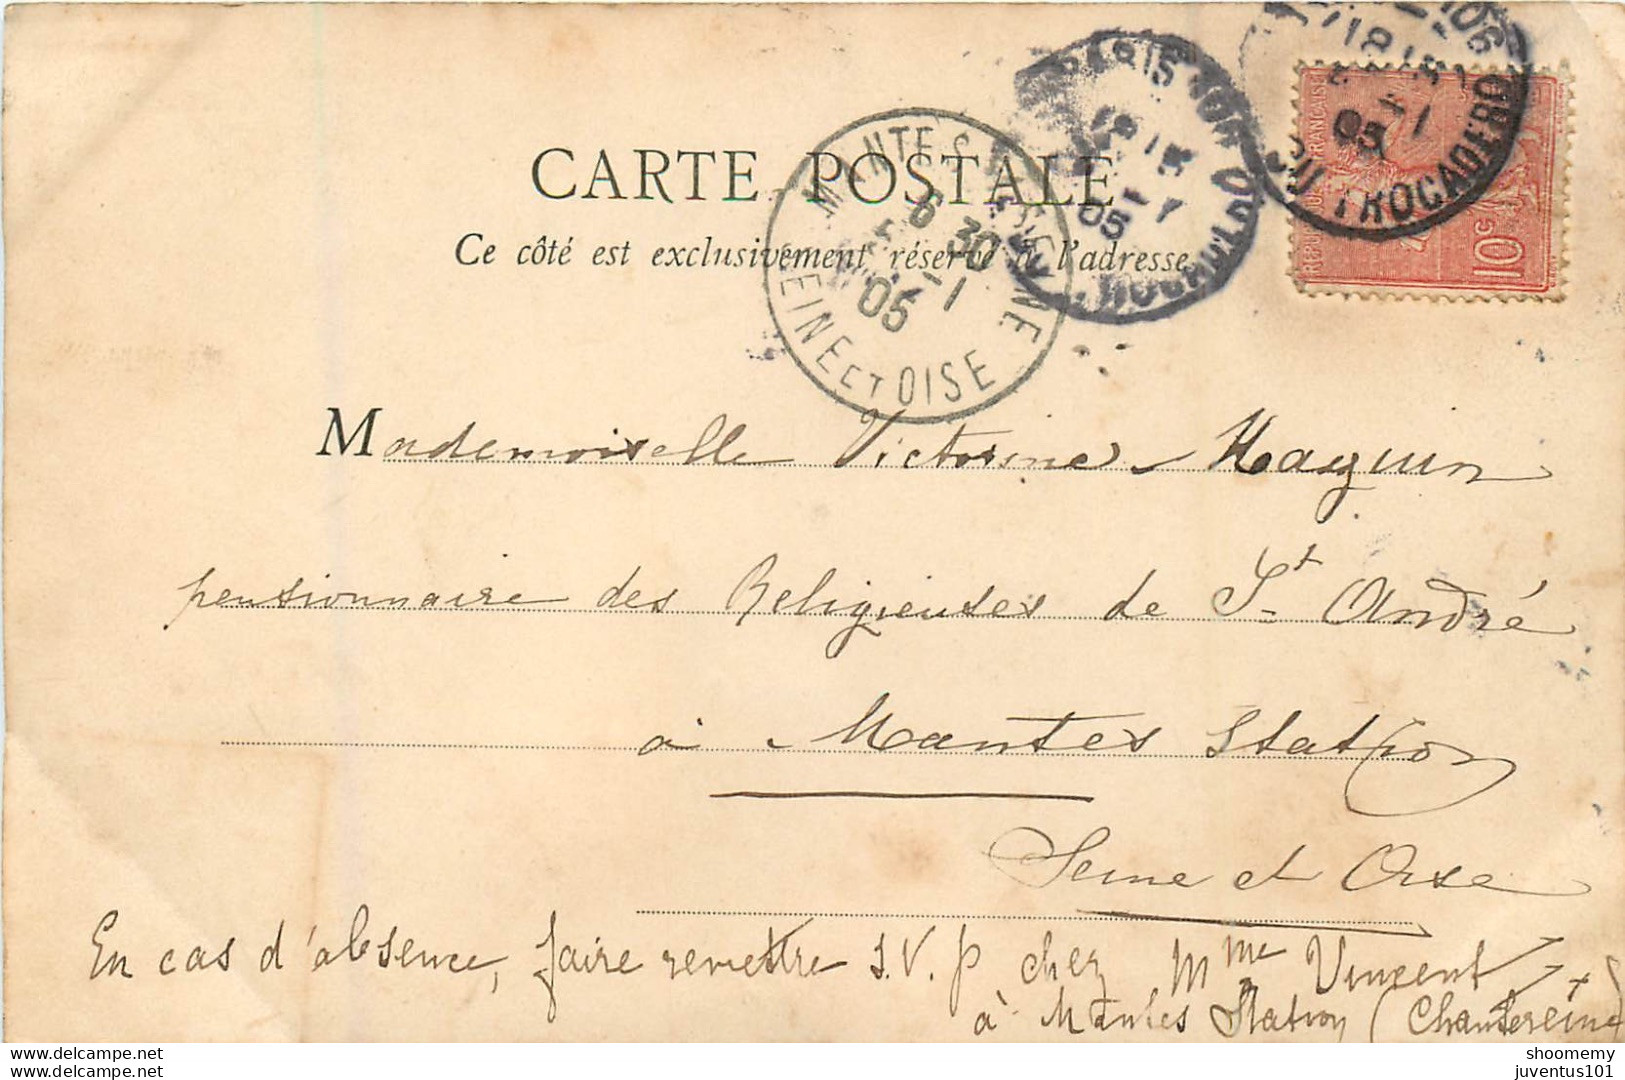 CARTE POSTALE
Ce côté est exclusivement réservé à l'adresse
MANTES
6 30
5 -1
05
SEINE ET OISE
PARIS
18 15
05
18 15
05
DU TROCADERO
10c
Mademoiselle Victorine Haquin
pensionnaire des Religieuses de St André
à Mantes Station
Seine et Oise
En cas d'absence, faire remettre S.V.P chez Mme Vincent
à Mantes Station (Chantereine)
delcampe.net
delcampe.net
shoomemy
juventus101